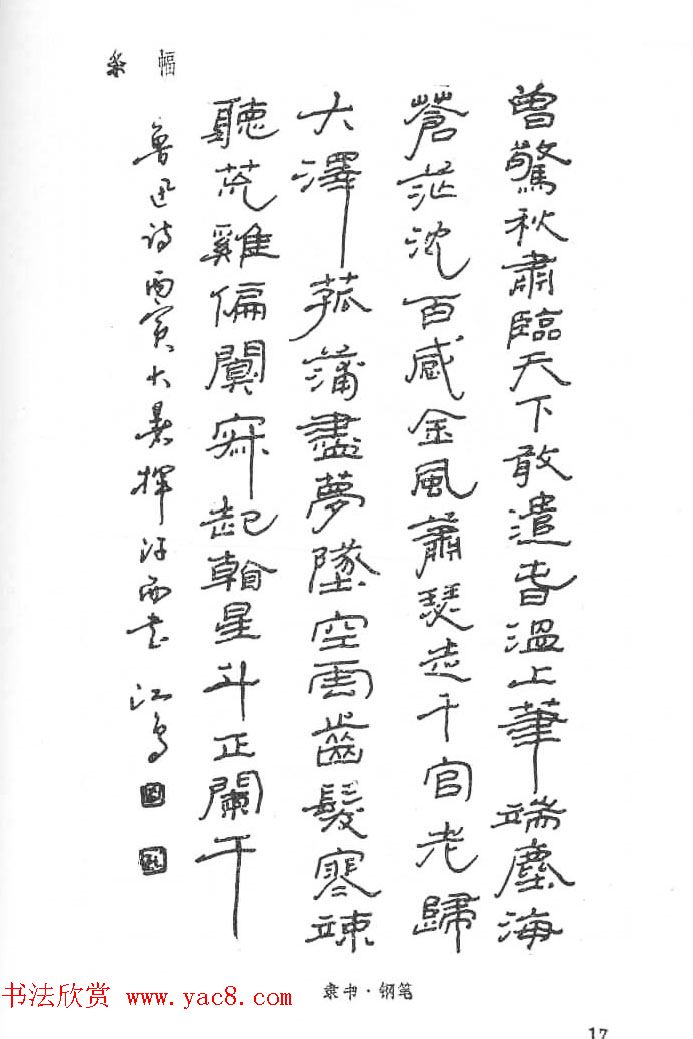 条幅
曾驚秋肅臨天下敢遣春温上筆端塵海
蒼茫沈百感金風蕭瑟走千官老歸
大澤菰蒲盡夢墜空雲齒髮寒竦
聽荒雞偏闃寂起看星斗正闌干
魯迅诗丙寅大暑揮汗而书 江鸟
隶书·钢笔
书法欣赏 www.yac8.com
17